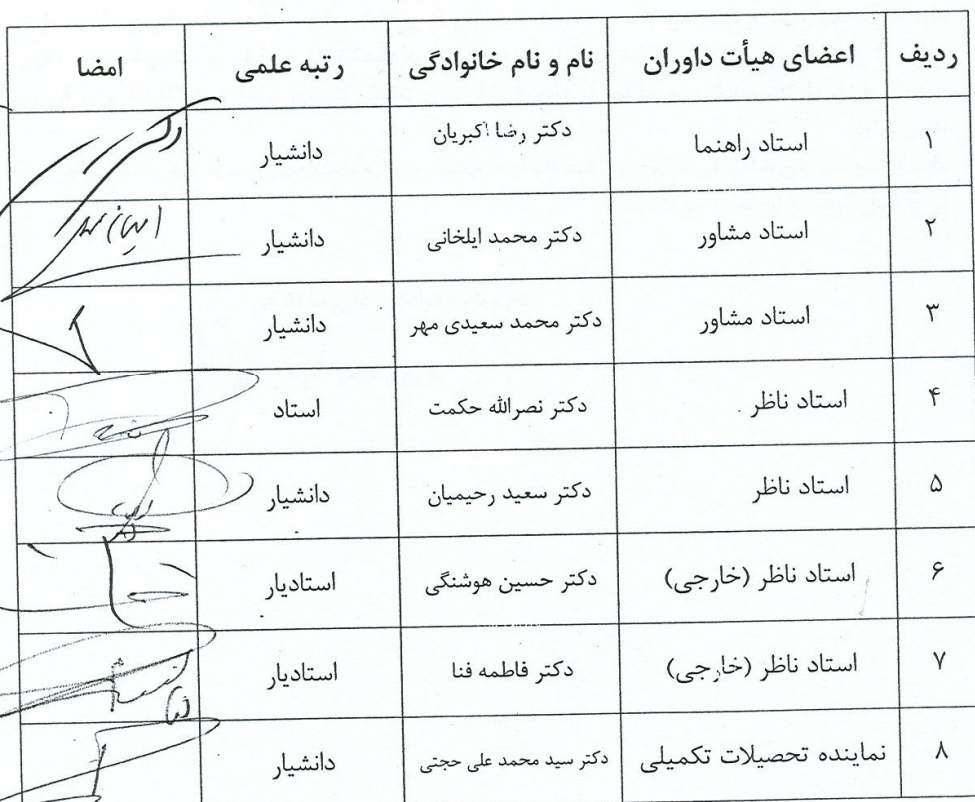 ردیف اعضای هیأت داوران نام و نام خانوادگی رتبه علمی امضا
۱ استاد راهنما دکتر رضا اکبریان دانشیار
۲ استاد مشاور دکتر محمد ایلخانی دانشیار
۳ استاد مشاور دکتر محمد سعیدی مهر دانشیار
۴ استاد ناظر دکتر نصرالله حکمت استاد
۵ استاد ناظر دکتر سعید رحیمیان دانشیار
۶ استاد ناظر (خارجی) دکتر حسین هوشنگی استادیار
۷ استاد ناظر (خارجی) دکتر فاطمه فنا استادیار
۸ نماینده تحصیلات تکمیلی دکتر سید محمد علی حجتی دانشیار